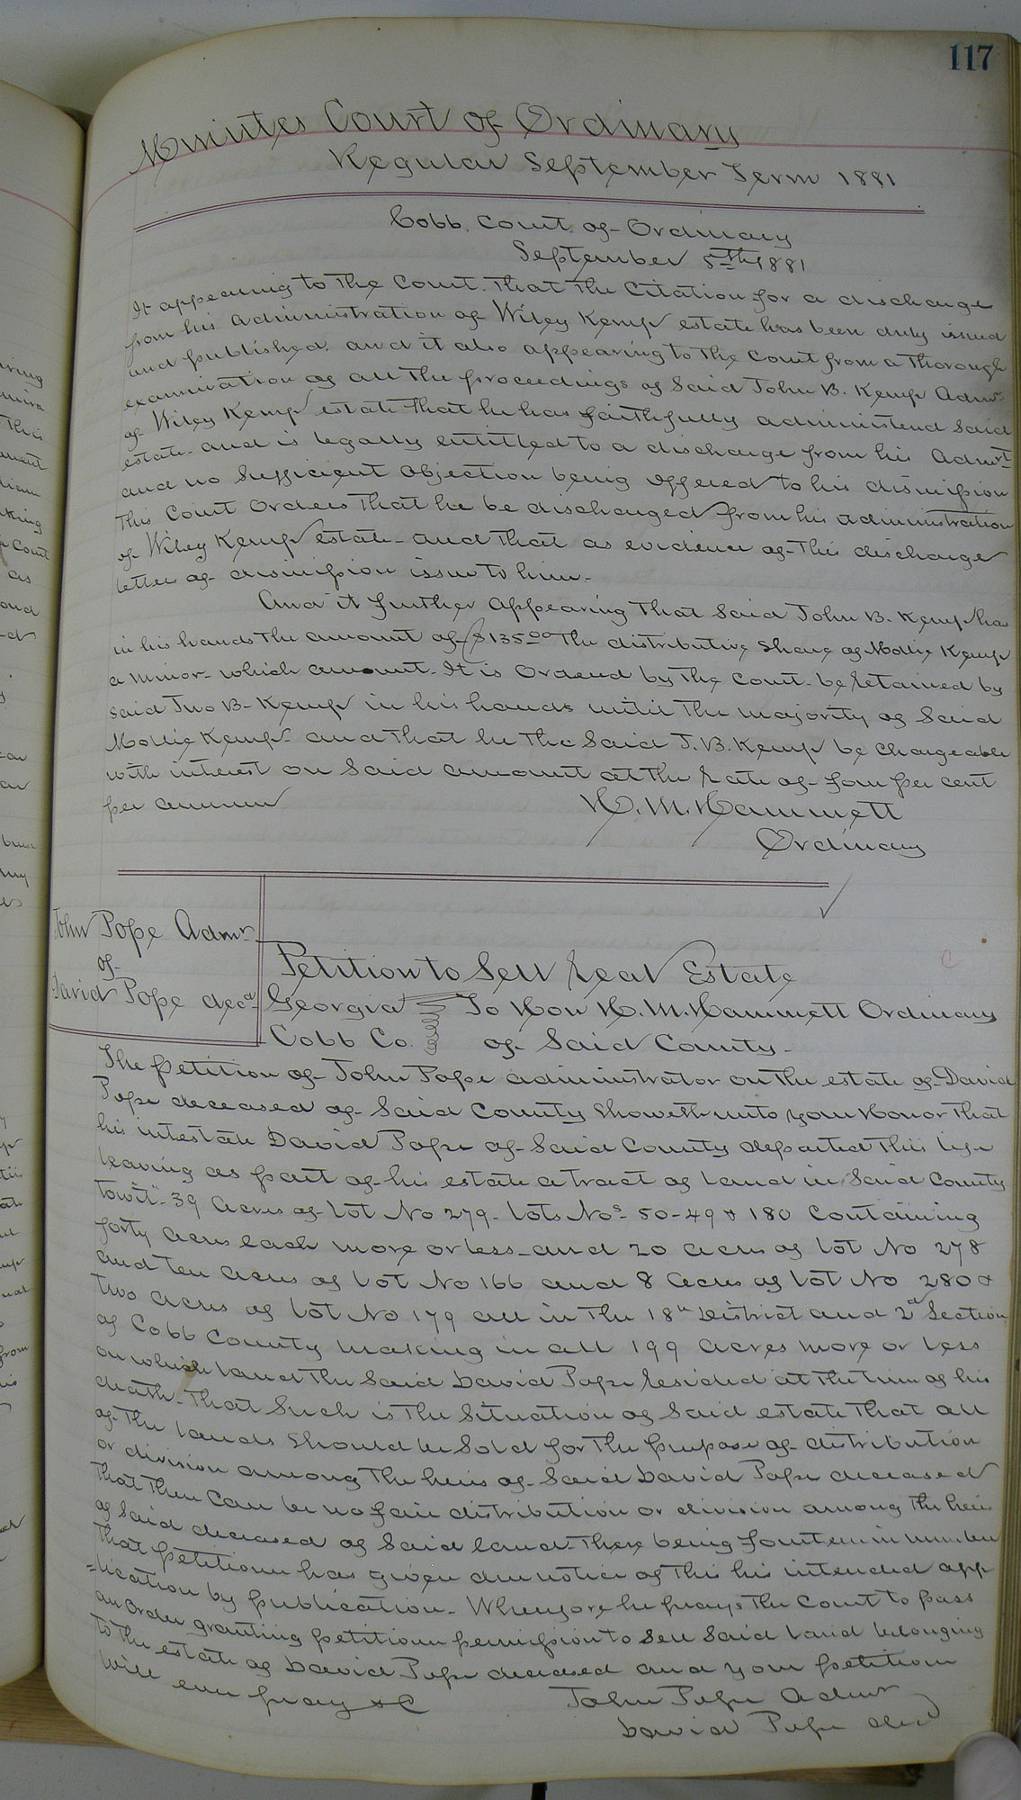 117
Minutes Court of Ordinary
Regular September Term 1881
Cobb. Court. of Ordinary
September 5th 1881
It appearing to the Court. That the Citation for a discharge
from his administration of Wiley Kemp estate has been duly issued
and published. and it also appearing to the Court from a thorough
examination of all the proceedings of said John B. Kemp Admr
of Wiley Kemp estate that he has faithfully administered said
estate and is legally entitled to a discharge from his Admrt
and no sufficient objection being offered to his dismission
This Court orders that he be discharged from his administration
of Wiley Kemp estate and that as evidence of this discharge
letter of dismission issue to him.
And it further appearing that said John B. Kemp has
in his hands the amount of $135.00 the distributive share of Mollie Kemp
a minor. which amount. It is ordered by the Court. be retained by
said Jno B. Kemp in his hands until the majority of said
Mollie Kemp and that he the said J. B. Kemp be chargeable
with interest on said amount at the rate of four per cent
per annum
H. M. Hammett
Ordinary
John Pope Admr
of
David Pope decd
Petition to Sell Real Estate
Georgia To Hon H. M. Hammett Ordinary
Cobb Co. of Said County.
The petition of John Pope administrator on the estate of David
Pope deceased of said County Showeth unto your Honor that
his intestate David Pope of said County departed this life
leaving as part of his estate a tract of land in said County
towit 39 Acres of Lot No 279. Lots Nos 50-49 & 180 Containing
forty acres each more or less and 20 acres of Lot No 278
and ten acres of Lot No 166 and 8 acres of Lot No 280 &
two acres of Lot No 179 all in the 18th District and 2d Section
of Cobb County making in all 199 acres more or less
on which land the said David Pope resided at the time of his
death. That such is the situation of said estate that all
of the lands should be sold for the purpose of distribution
or division among the heirs of said David Pope deceased
that there can be no fair distribution or division among the heirs
of said deceased of said land there being fourteen in number
that petitioner has given due notice of this his intended app
=lication by publication. Wherefore he prays the Court to pass
an order granting petitioner permission to sell said land belonging
to the estate of David Pope deceased and your petitioner
will ever pray &C
John Pope Admr
David Pope decd